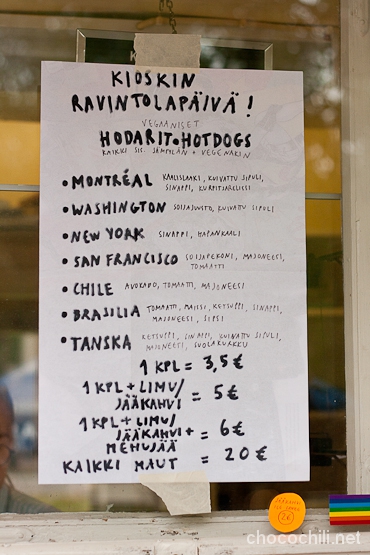 KIOSKIN
RAVINTOLAPÄIVÄ!
VEGAANISET
HODARIT·HOTDOGS
KAIKKI SIS. SÄMPYLÄN + VEGENAKIN
• MONTRÉAL KAALISLAAKI, KUIVATTU SIPULI,
SINAPPI, KURPITSARELISSI
• WASHINGTON SOIJAJUUSTO, KUIVATTU SIPULI
• NEW YORK SINAPPI, HAPANKAALI
• SAN FRANCISCO SOIJAPEKONI, MAJONEESI,
TOMAATTI
• CHILE AVOKADO, TOMAATTI, MAJONEESI
• BRASILIA TOMAATTI, MAISSI, KETSUPPI, SINAPPI,
MAJONEESI, SIPSI
• TANSKA KETSUPPI, SINAPPI, KUIVATTU SIPULI,
MAJONEESI, SUOLAKURKKU
1 KPL = 3,5 €
1 KPL + LIMU/
JÄÄKAHVI = 5 €
1 KPL + LIMU/
JÄÄKAHVI + = 6 €
MEHUJÄÄ
KAIKKI MAUT = 20 €
2€
chocochili.net